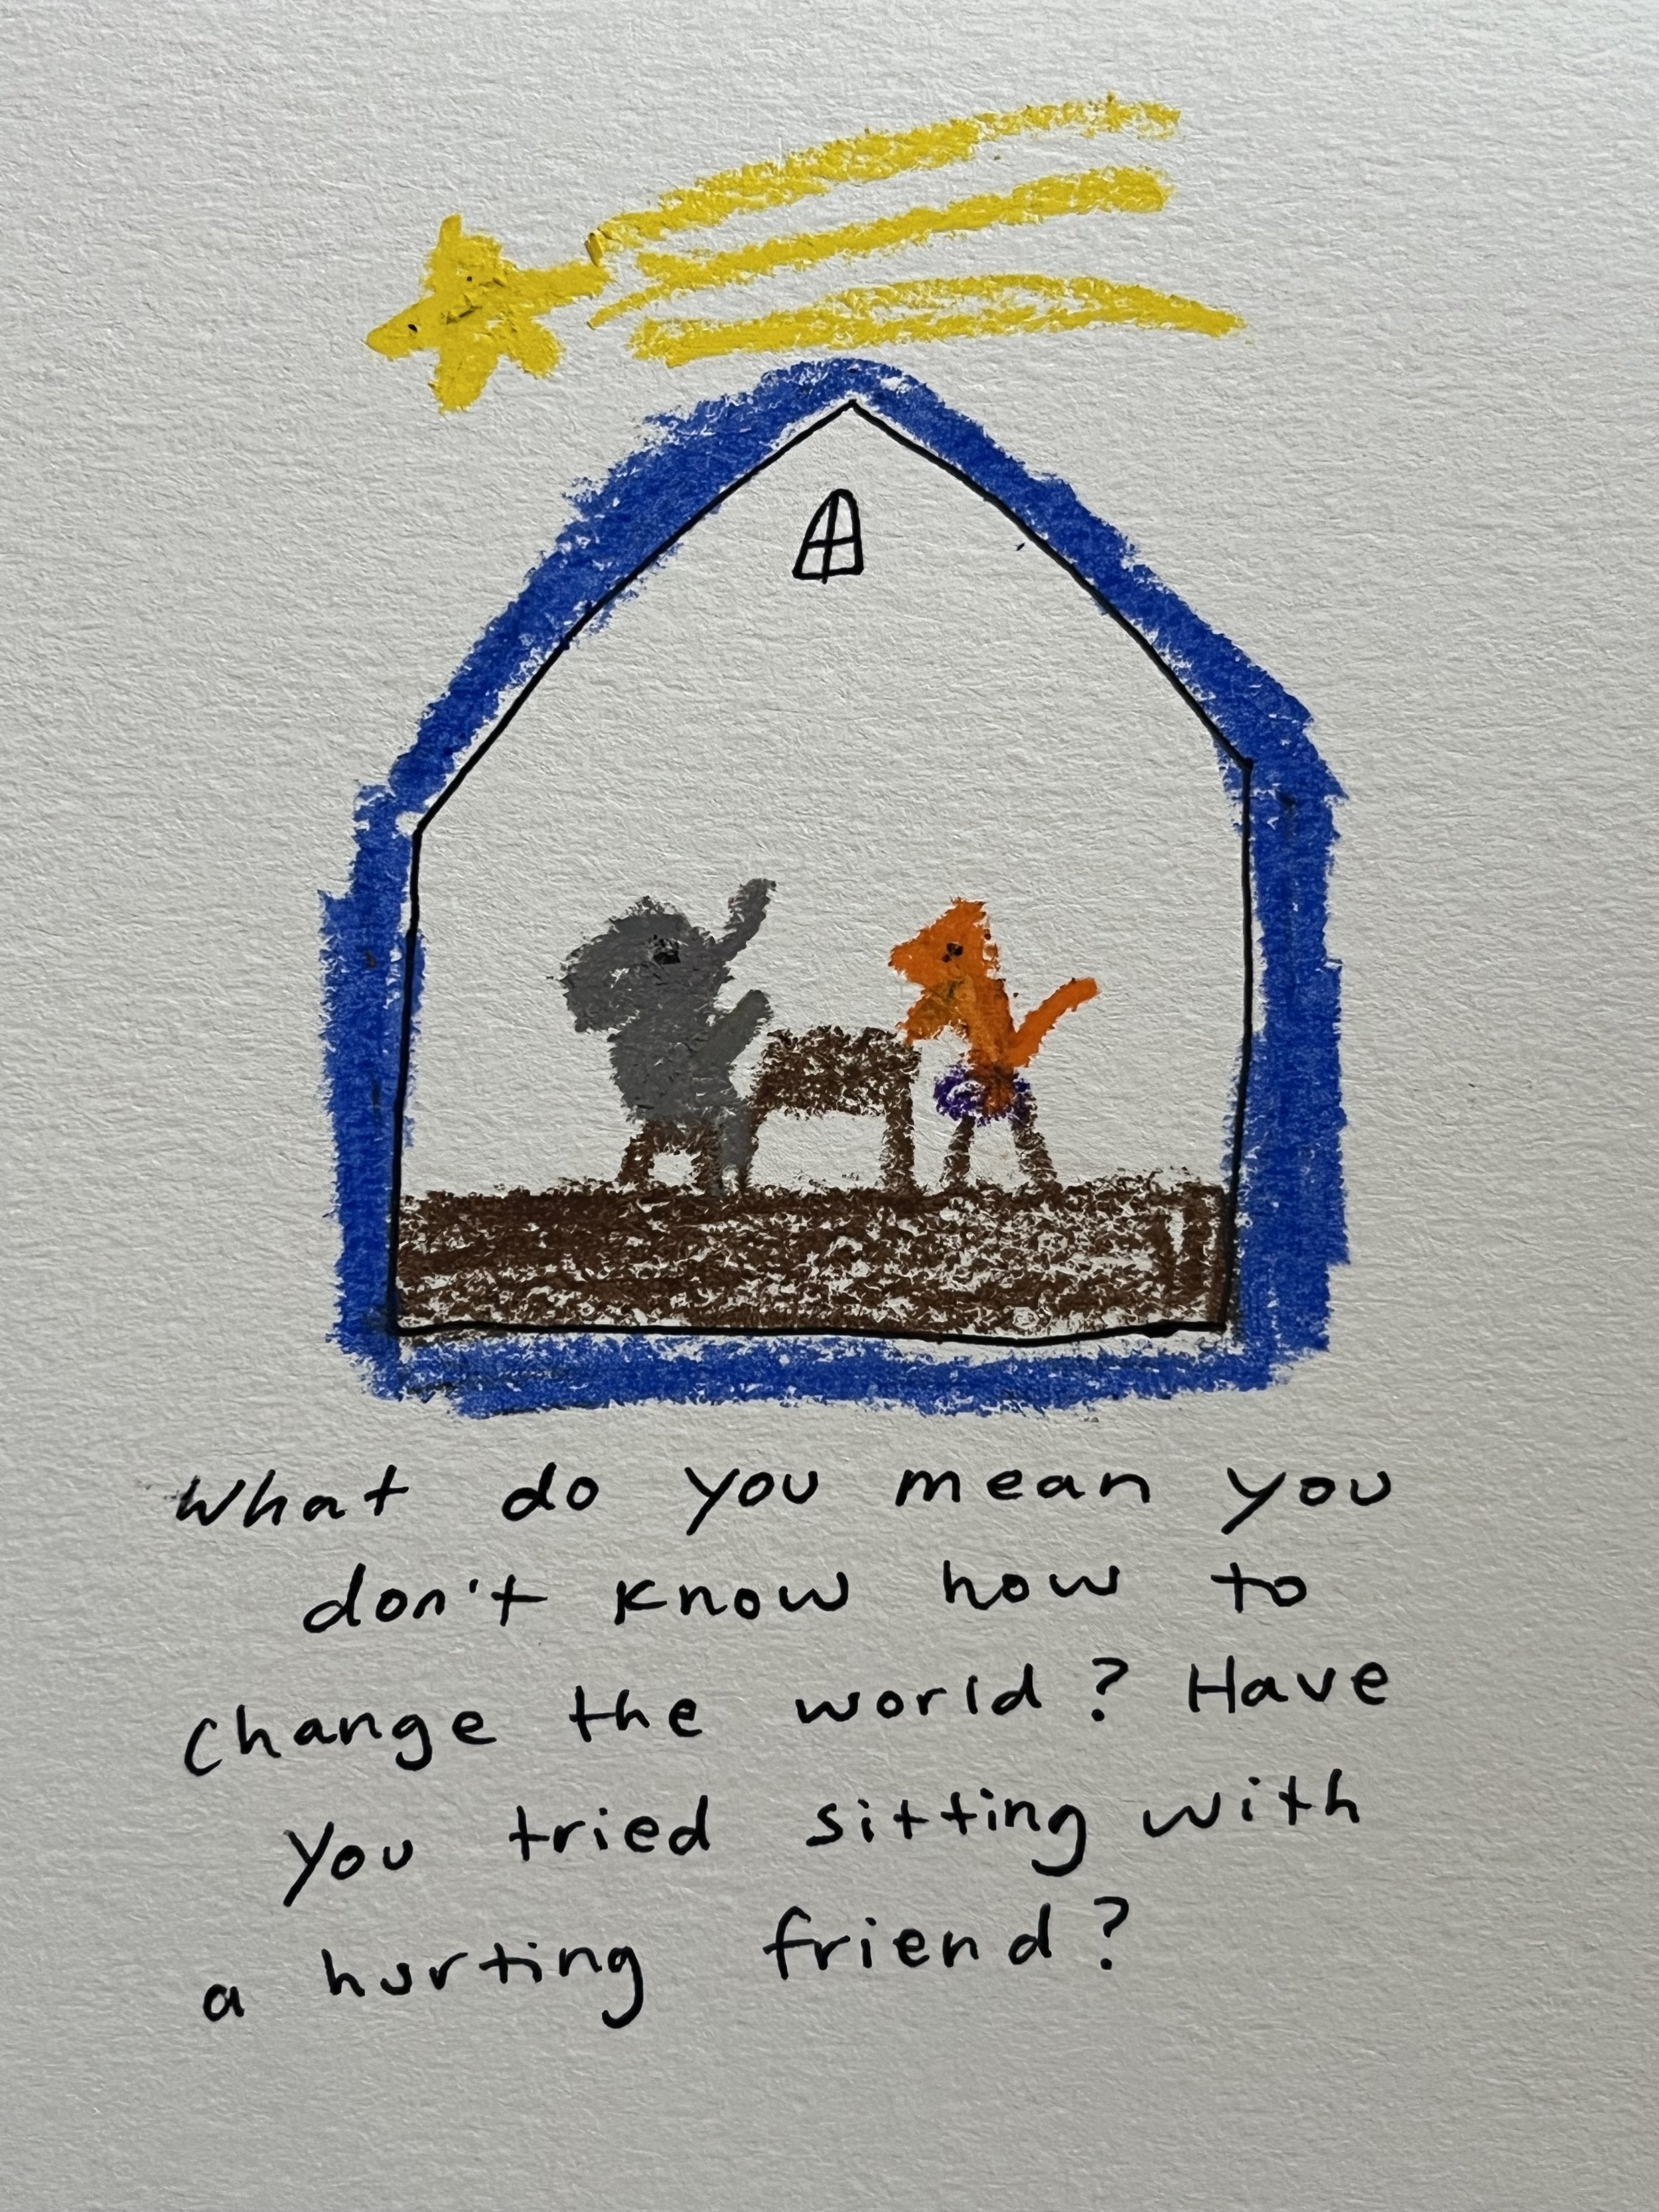 What do you mean you
don't know how to
change the world? Have
you tried sitting with
a hurting friend?